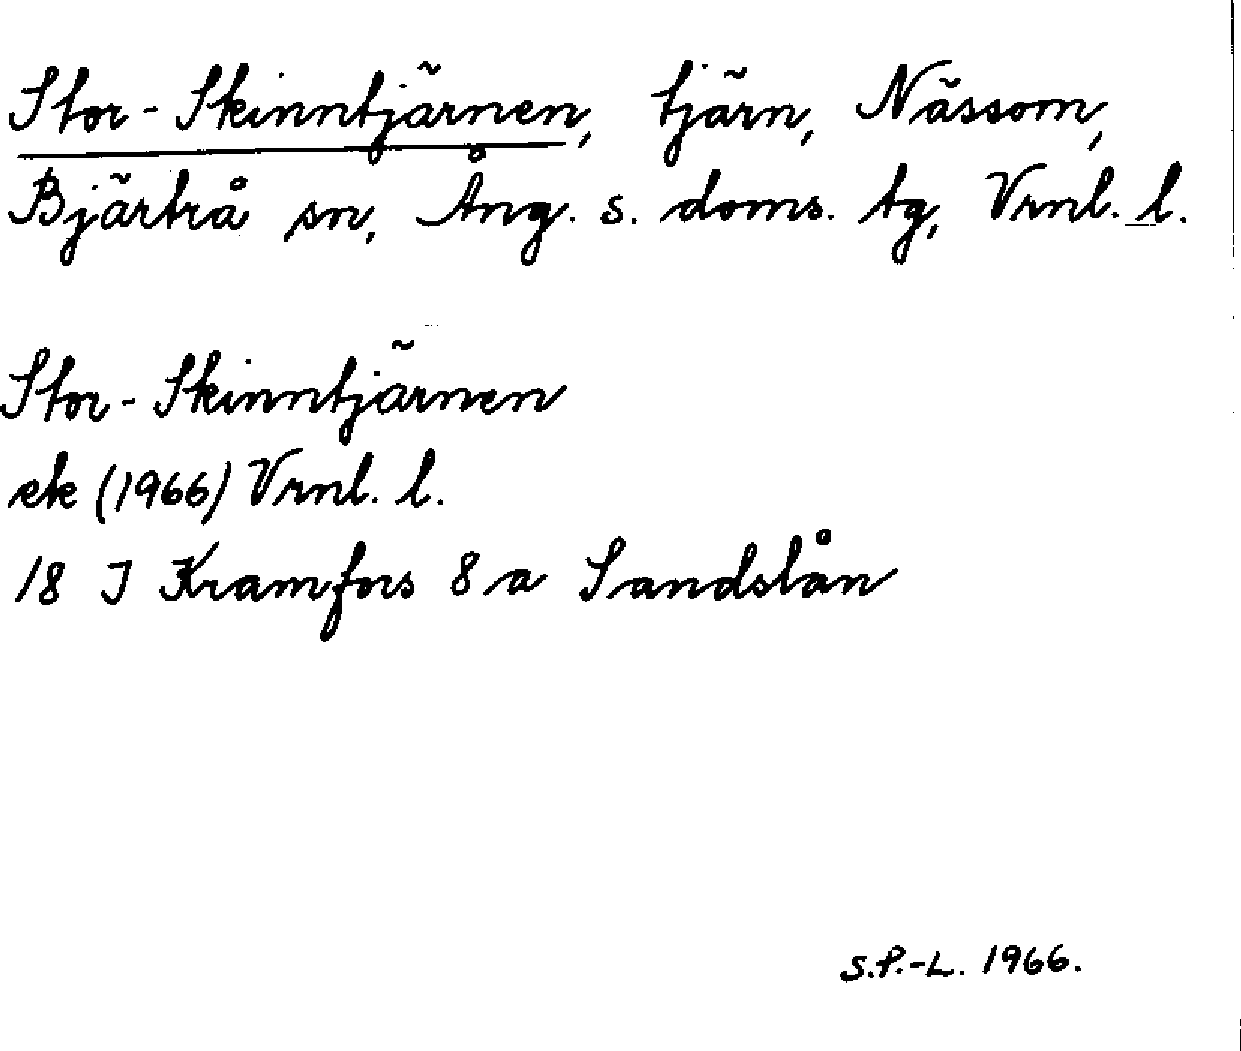 Stor-Skinntjärnen, tjärn, Nässom,
Bjärtrå sn, Ång. s. doms. tg, Vrnl. l.
Stor-Skinntjärnen
ek (1966) Vrnl. l.
18 J Kramfors 8 a Sandslån
S.P.-L. 1966.